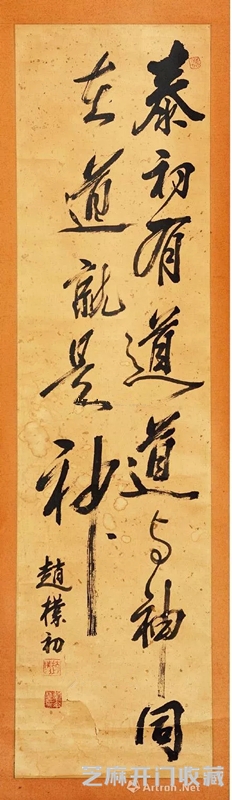 泰初有道道与神同
在道就是神
趙樸初
芝麻开门收藏
Artron.Net